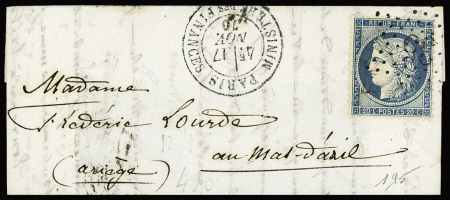 PARIS MINISTÈRE DES FINANCES
4E
17
NOV.
70
REPUB. FRANC.
20 C. POSTES 20 C.
Madame
Frédéric Lourde
au Mas-d'azil
(ariège)
195